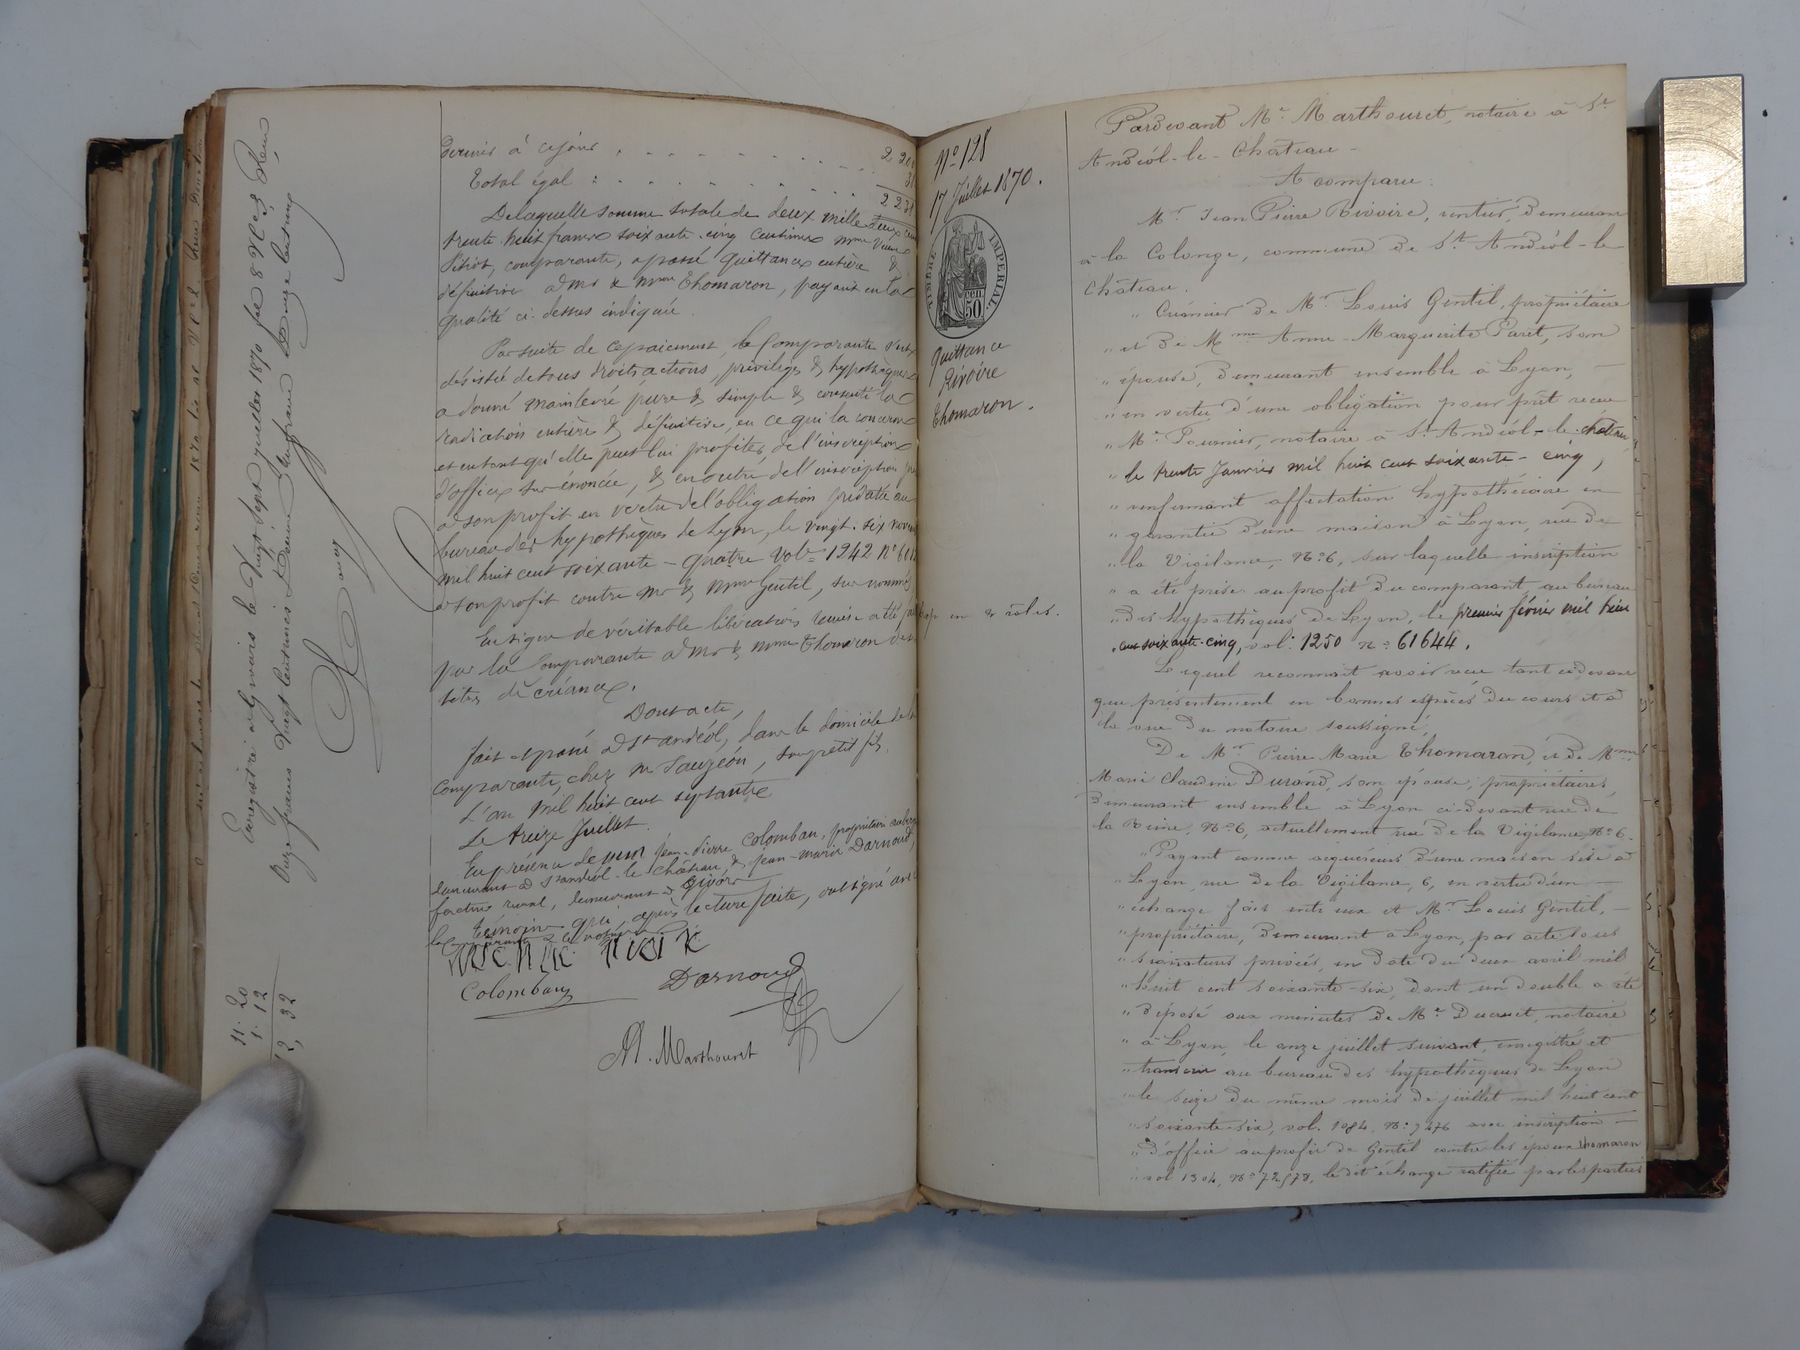 dernier à ce jour
Total égal
De laquelle somme totale de deux mille deux cent
trente huit francs soixante cinq centimes mme veuve
comparante, a passé quittance entière &
définitive à mr & mme Thomaron, payant en la
qualité ci-dessus indiquée.
Par suite de ce paiement, la Comparante s'est
désistée de tous droits, actions, privilèges & hypothèques
a donné mainlevée pure & simple & consenti la
radiation entière & définitive, en ce qui la concerne
et autant qu'elle peut lui profiter, de l'inscription
d'office sus-énoncée, & en outre de l'inscription
à son profit en vertu de l'obligation prédatée au
bureau des hypothèques de Lyon, le vingt-six novembre
mil huit cent soixante-quatre Vole 1242 No
à son profit contre mr & mme Gentil, sus nommés
En signe de véritable libération remise a été faite
par la Comparante à mr & mme Thomaron de son
titre de créance.
Dont acte,
fait & passé à St andéol, dans le domicile de la
comparante, chez mr Sauzéon, son petit fils.
L'an mil huit cent septante
Le treize Juillet.
En présence de mm jean-pierre Colomban, propriétaire
demeurant à St andéol-le-château, & jean-marie Darnoud,
facteur rural, demeurant à Givors
témoins qui, après lecture faite, ont signé avec
la comparante & le notaire
Colomban Darnoud
M. Marthouret
Enregistré à Givors le Vingt sept juillet 1870 fol 8
Onze francs Vingt centimes
11. 20
1. 12
12, 32
No 128
17 Juillet 1870.
TIMBRE IMPÉRIAL
50 cen
Quittance
Rivoire
Thomaron.
en 2 rôles.
Pardevant Me Marthouret, notaire à St
Andéol-le-Château
A comparu:
Mr Jean Pierre Rivoire, rentier, demeurant
à la Colonge, commune de St Andéol-le
Château.
" Créancier de Mr Louis Gentil, propriétaire
" et de Mme Anne-Marguerite Paret, son
" épouse, demeurant ensemble à Lyon,
" en vertu d'une obligation pour prêt reçue
" Me Fournier, notaire à St Andéol-le-château
" le trente Janvier mil huit cent soixante-cinq,
" renfermant affectation hypothécaire en
" garantie d'une maison à Lyon, rue de
" la Vigilance, No 6, sur laquelle inscription
" a été prise au profit du comparant au bureau
" des hypothèques de Lyon, le premier février mil huit
" cent soixante-cinq, vol. 1250 no 61644.
Lequel reconnait avoir reçu tant cidevant
que présentement en bonnes espèces du cours et à
la vue du notaire soussigné,
De Mr Pierre Marie Thomaron, et de Mme
Marie Claudine Durand, son épouse, propriétaires,
demeurant ensemble à Lyon ci-devant rue de
la Reine, No 6, actuellement rue de la Vigilance, No 6.
" Payant comme acquéreurs d'une maison sise à
" Lyon, rue de la Vigilance, 6, en vertu d'un
" échange fait entre eux et Mr Louis Gentil,
" propriétaire, demeurant à Lyon, par acte sous
" signatures privées, en date du deux avril mil
" huit cent soixante-six, dont un double a été
" déposé aux minutes de Me Ducruet, notaire
" à Lyon, le onze juillet suivant, enregistré et
" transcrit au bureau des hypothèques de Lyon
" le seize du même mois de juillet mil huit cent
" soixante-six, vol. 1084, No 7476 avec inscription
" d'office au profit de Gentil contre les époux Thomaron
" vol 1304, No 72978, le dit échange ratifié par les parties